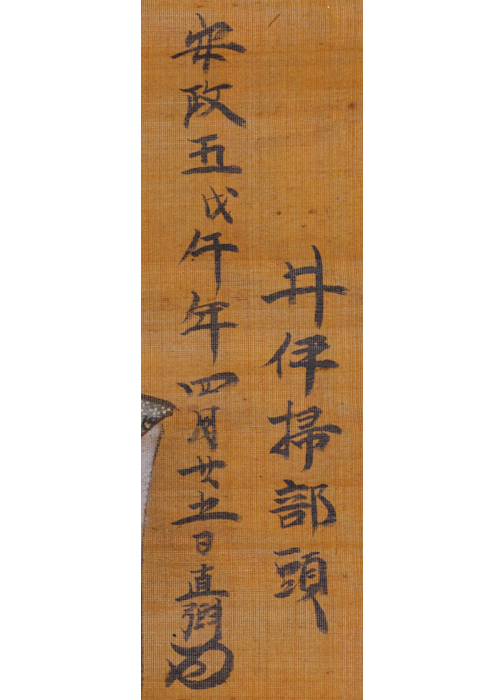 井伊掃部頭
安政五戊午年四月廿五日直弼